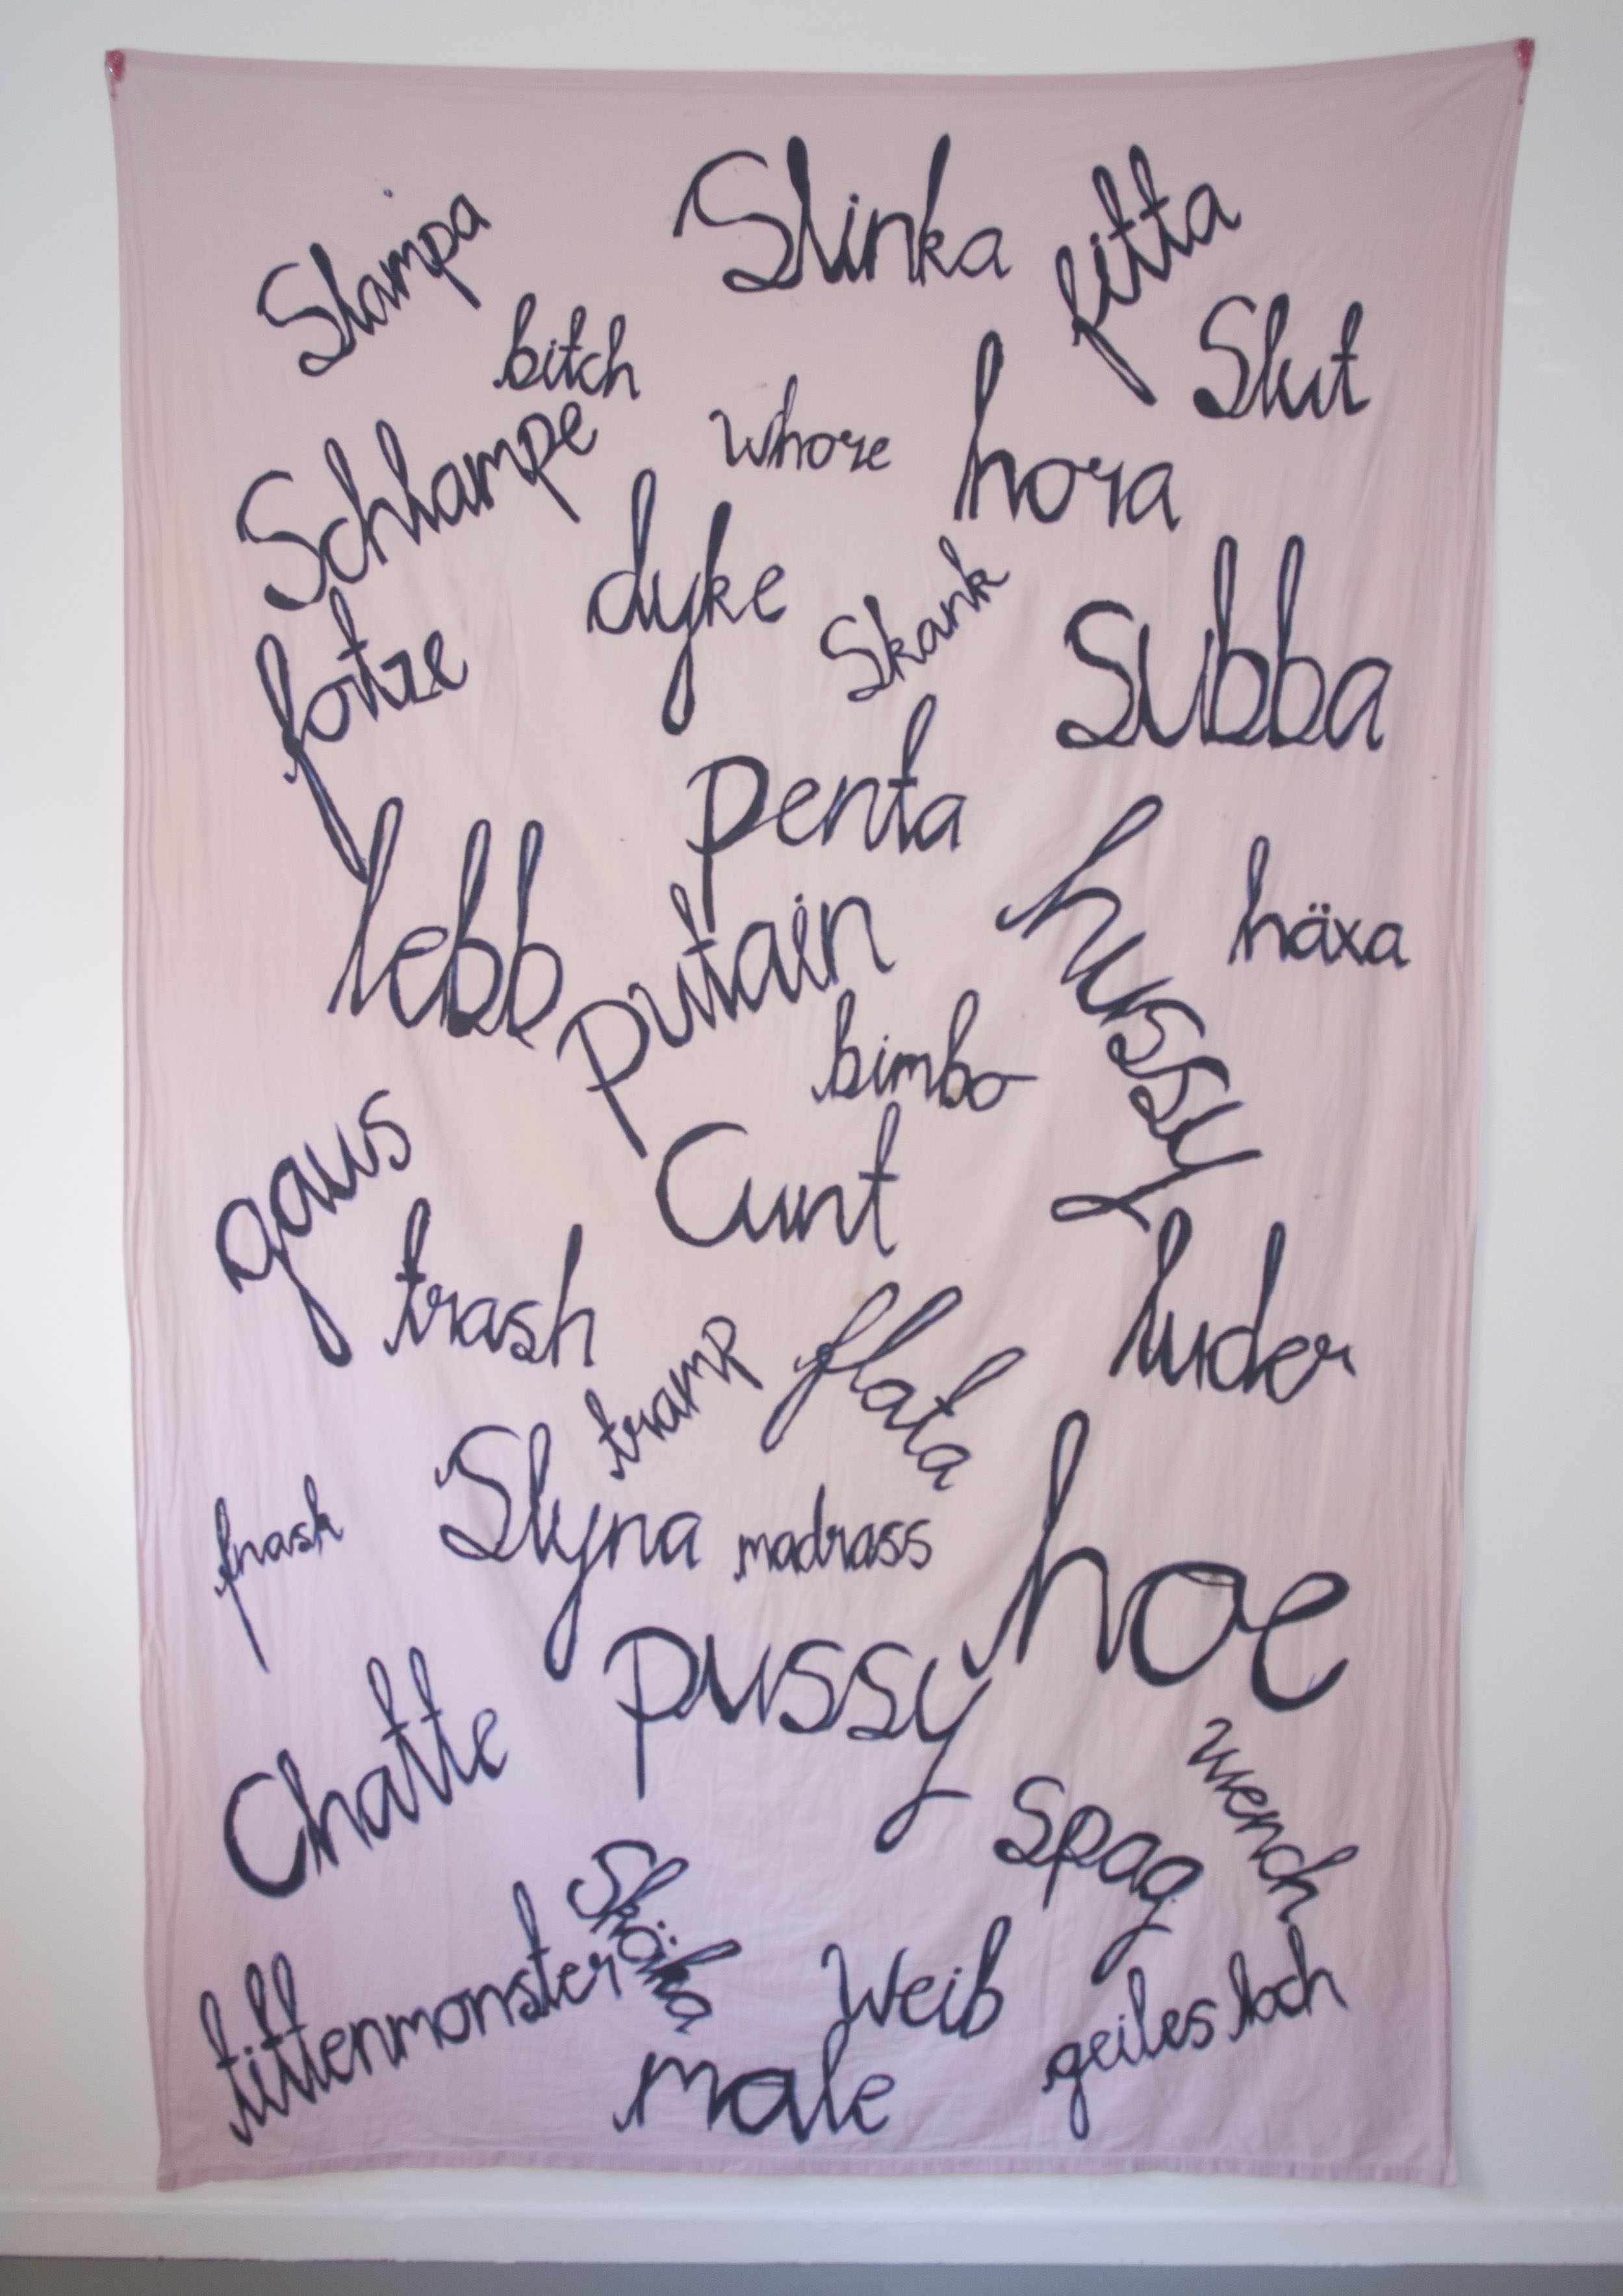 Slinka
fitta
Slampa
bitch
Slut
Schlampe
whore
hora
dyke
Skank
Subba
fotze
penta
lebb
putain
hussy
häxa
bimbo
gaus
Cunt
trash
luder
tramp
flata
fnask
Slyna
madrass
hoe
pussy
Chatte
wench
spag
Sköka
tittenmonster
Weib
geiles loch
male